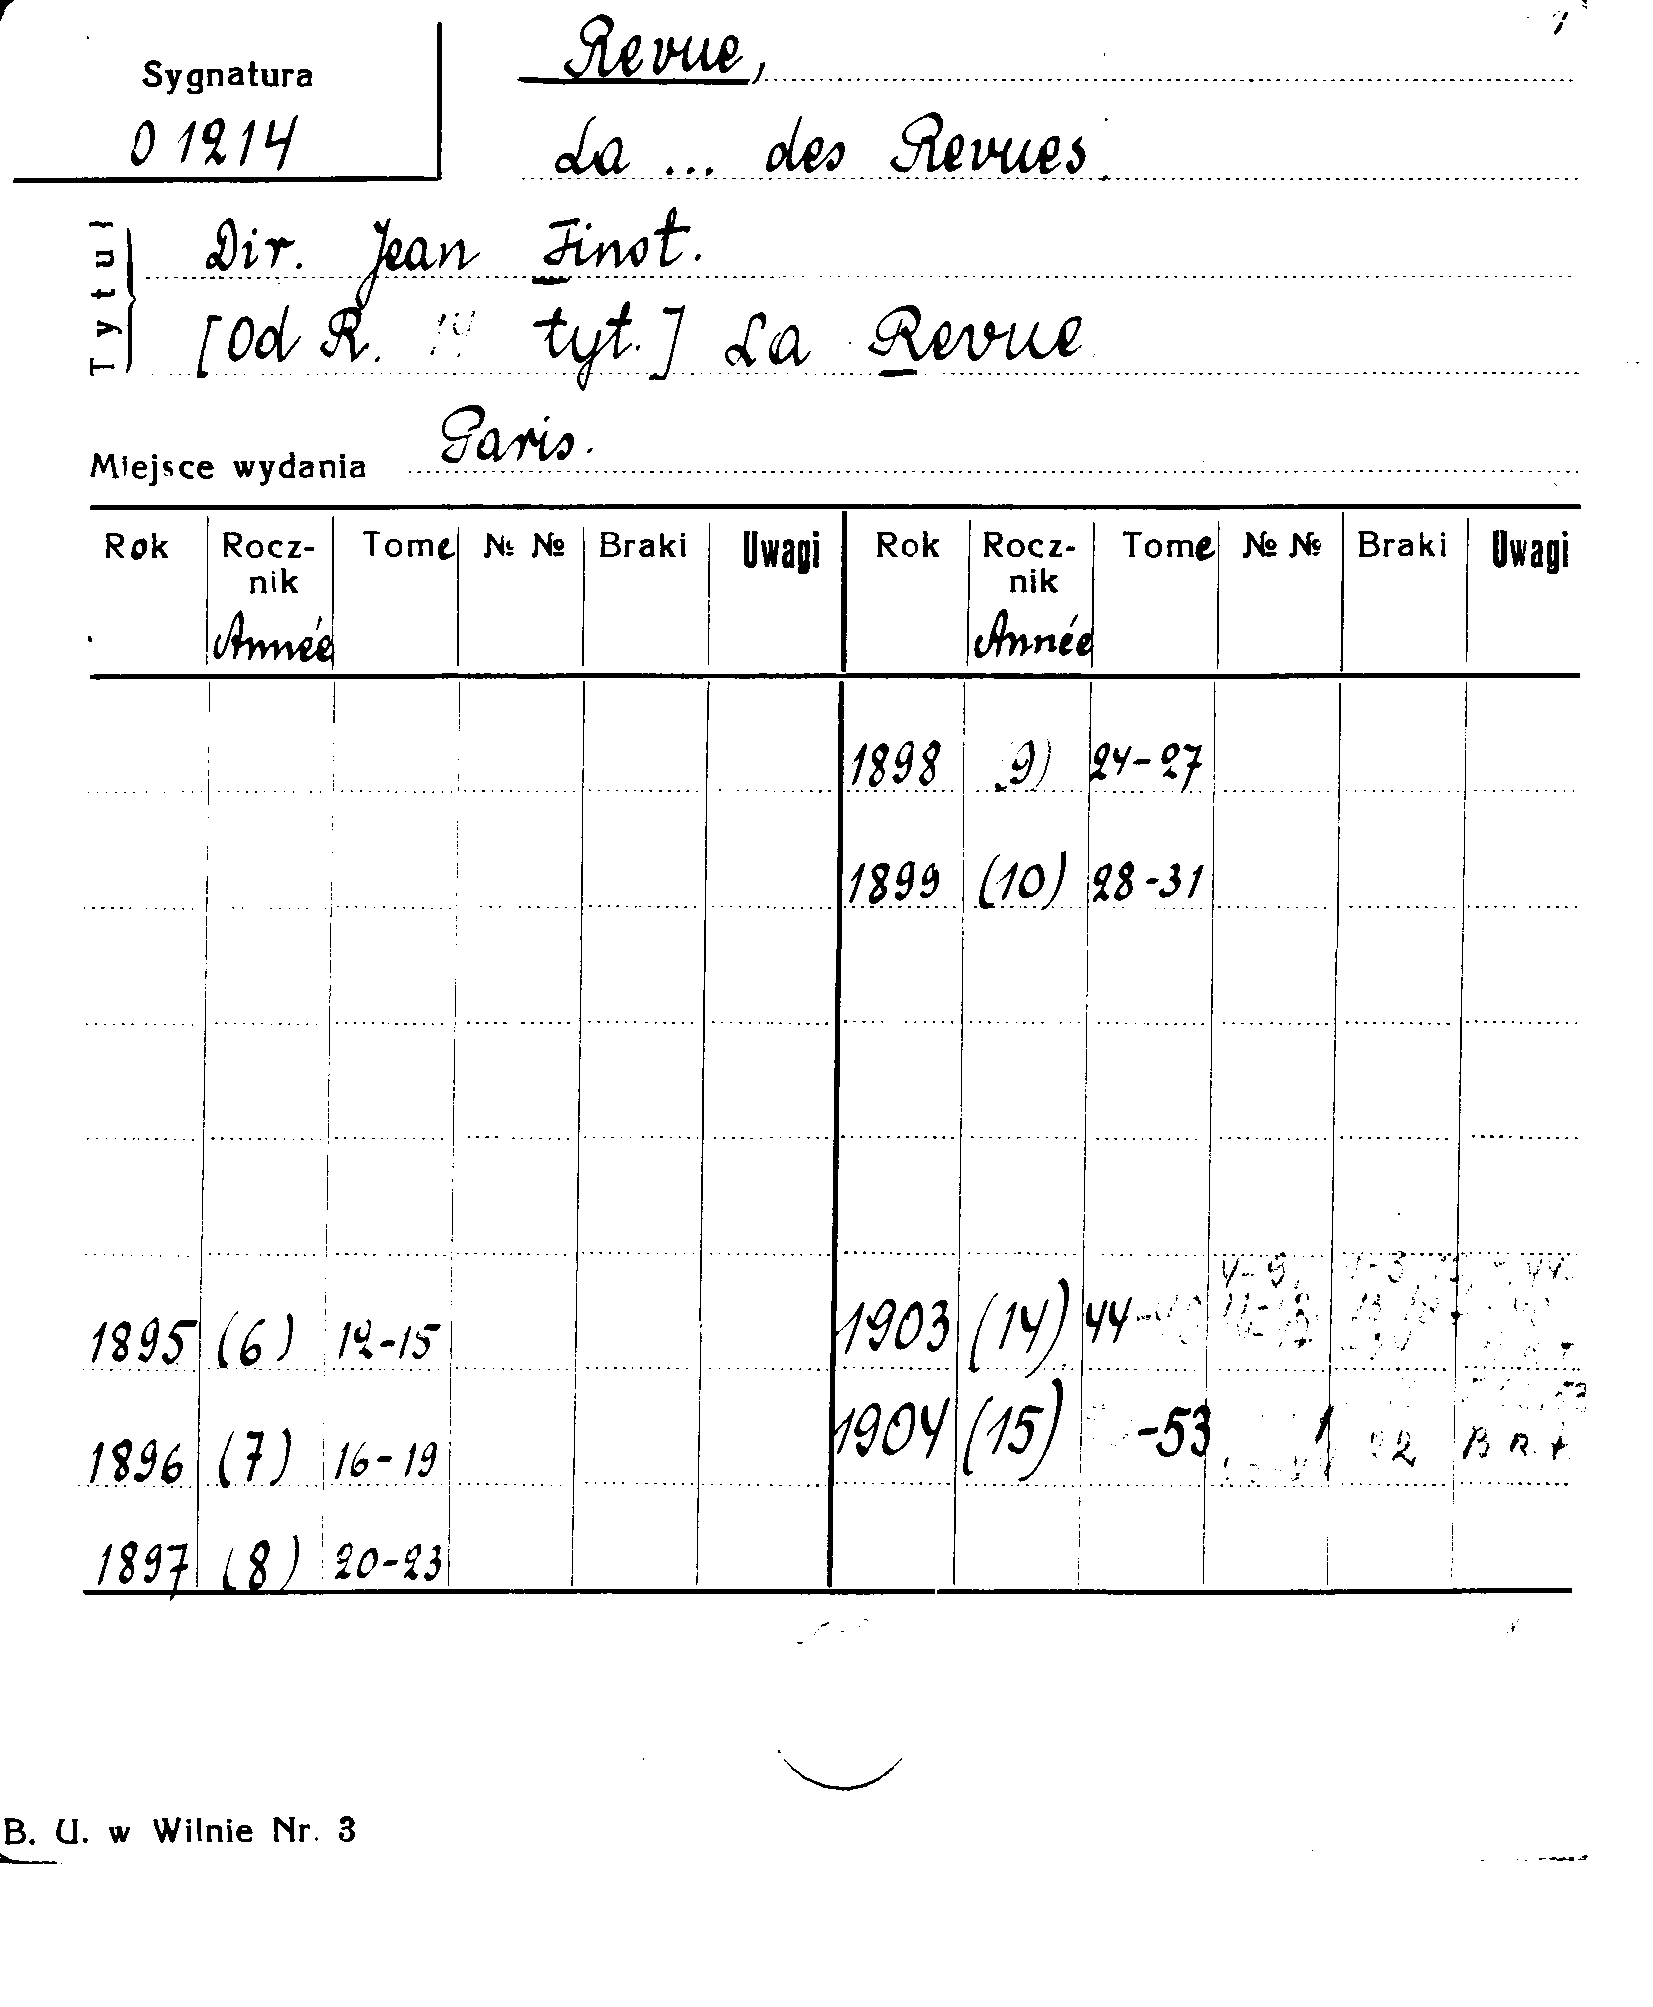 Revue,
Sygnatura
O 1214
La ... des Revues.
Tytuł
Dir. Jean Finot.
[Od R. 14 tyt.] La Revue
Miejsce wydania Paris.
Rok Rocz- Tome № № Braki Uwagi Rok Rocz- Tome № № Braki Uwagi
nik nik
Année Année
1898 9) 24-27
1899 (10) 28-31
1895 (6) 12-15 1903 (14) 44
1896 (7) 16-19 1904 (15) -53
1897 (8) 20-23
B. U. w Wilnie Nr. 3